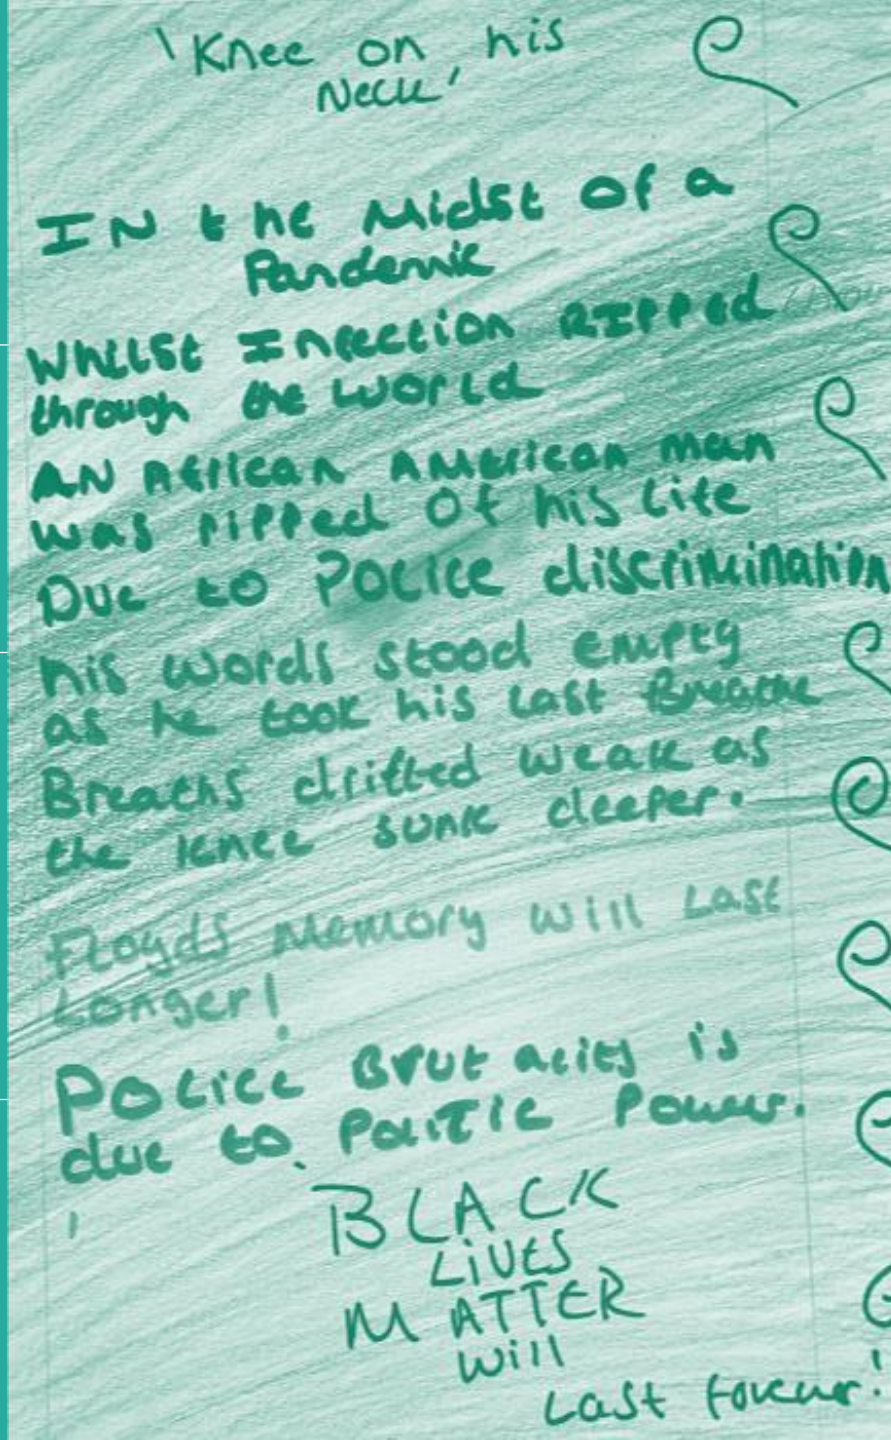 'Knee on his
Neck'
IN the Midst of a
Pandemic
Whilst Infection RIPPed
through the world
AN African American man
was ripped Of his life
Due to Police discrimination
his words stood empty
as he took his last Breathe
Breaths drifted weak as
the knee sunk deeper.
Floyds Memory will Last
Longer!
Police Brutality is
due to Politic Power.
BLACK
LiVES
MATTER
will
Last forever!